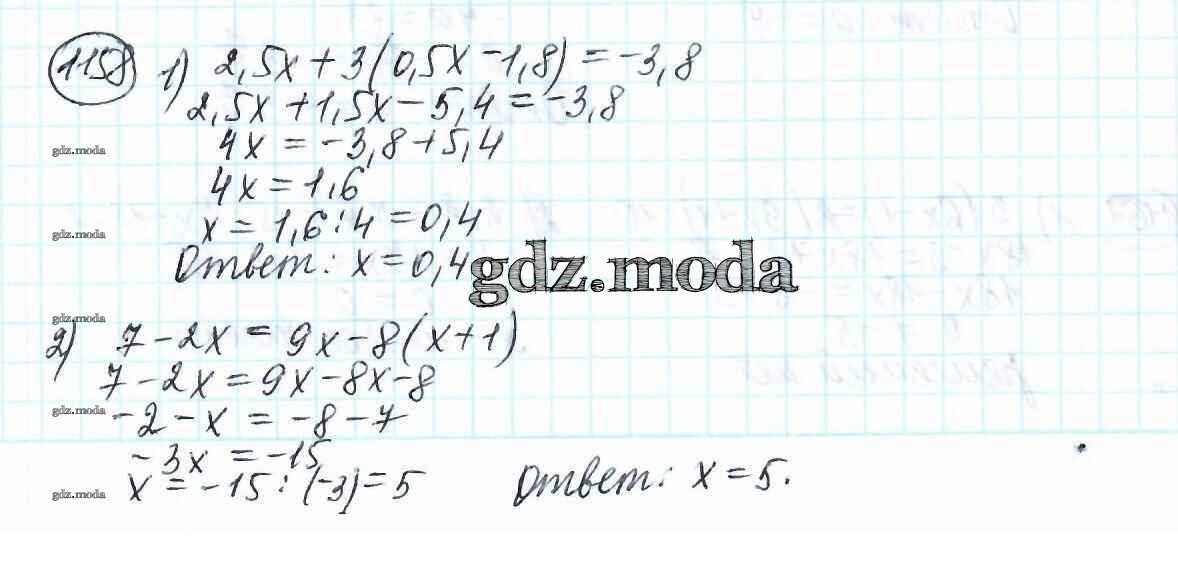 1158 1) 2,5x + 3(0,5x - 1,8) = -3,8
2,5x + 1,5x - 5,4 = -3,8
gdz.moda 4x = -3,8 + 5,4
4x = 1,6
gdz.moda x = 1,6 : 4 = 0,4
Ответ: x = 0,4
gdz.moda
gdz.moda
2) 7 - 2x = 9x - 8(x + 1)
7 - 2x = 9x - 8x - 8
gdz.moda -2 - x = -8 - 7
-3x = -15
gdz.moda x = -15 : (-3) = 5 Ответ: x = 5.